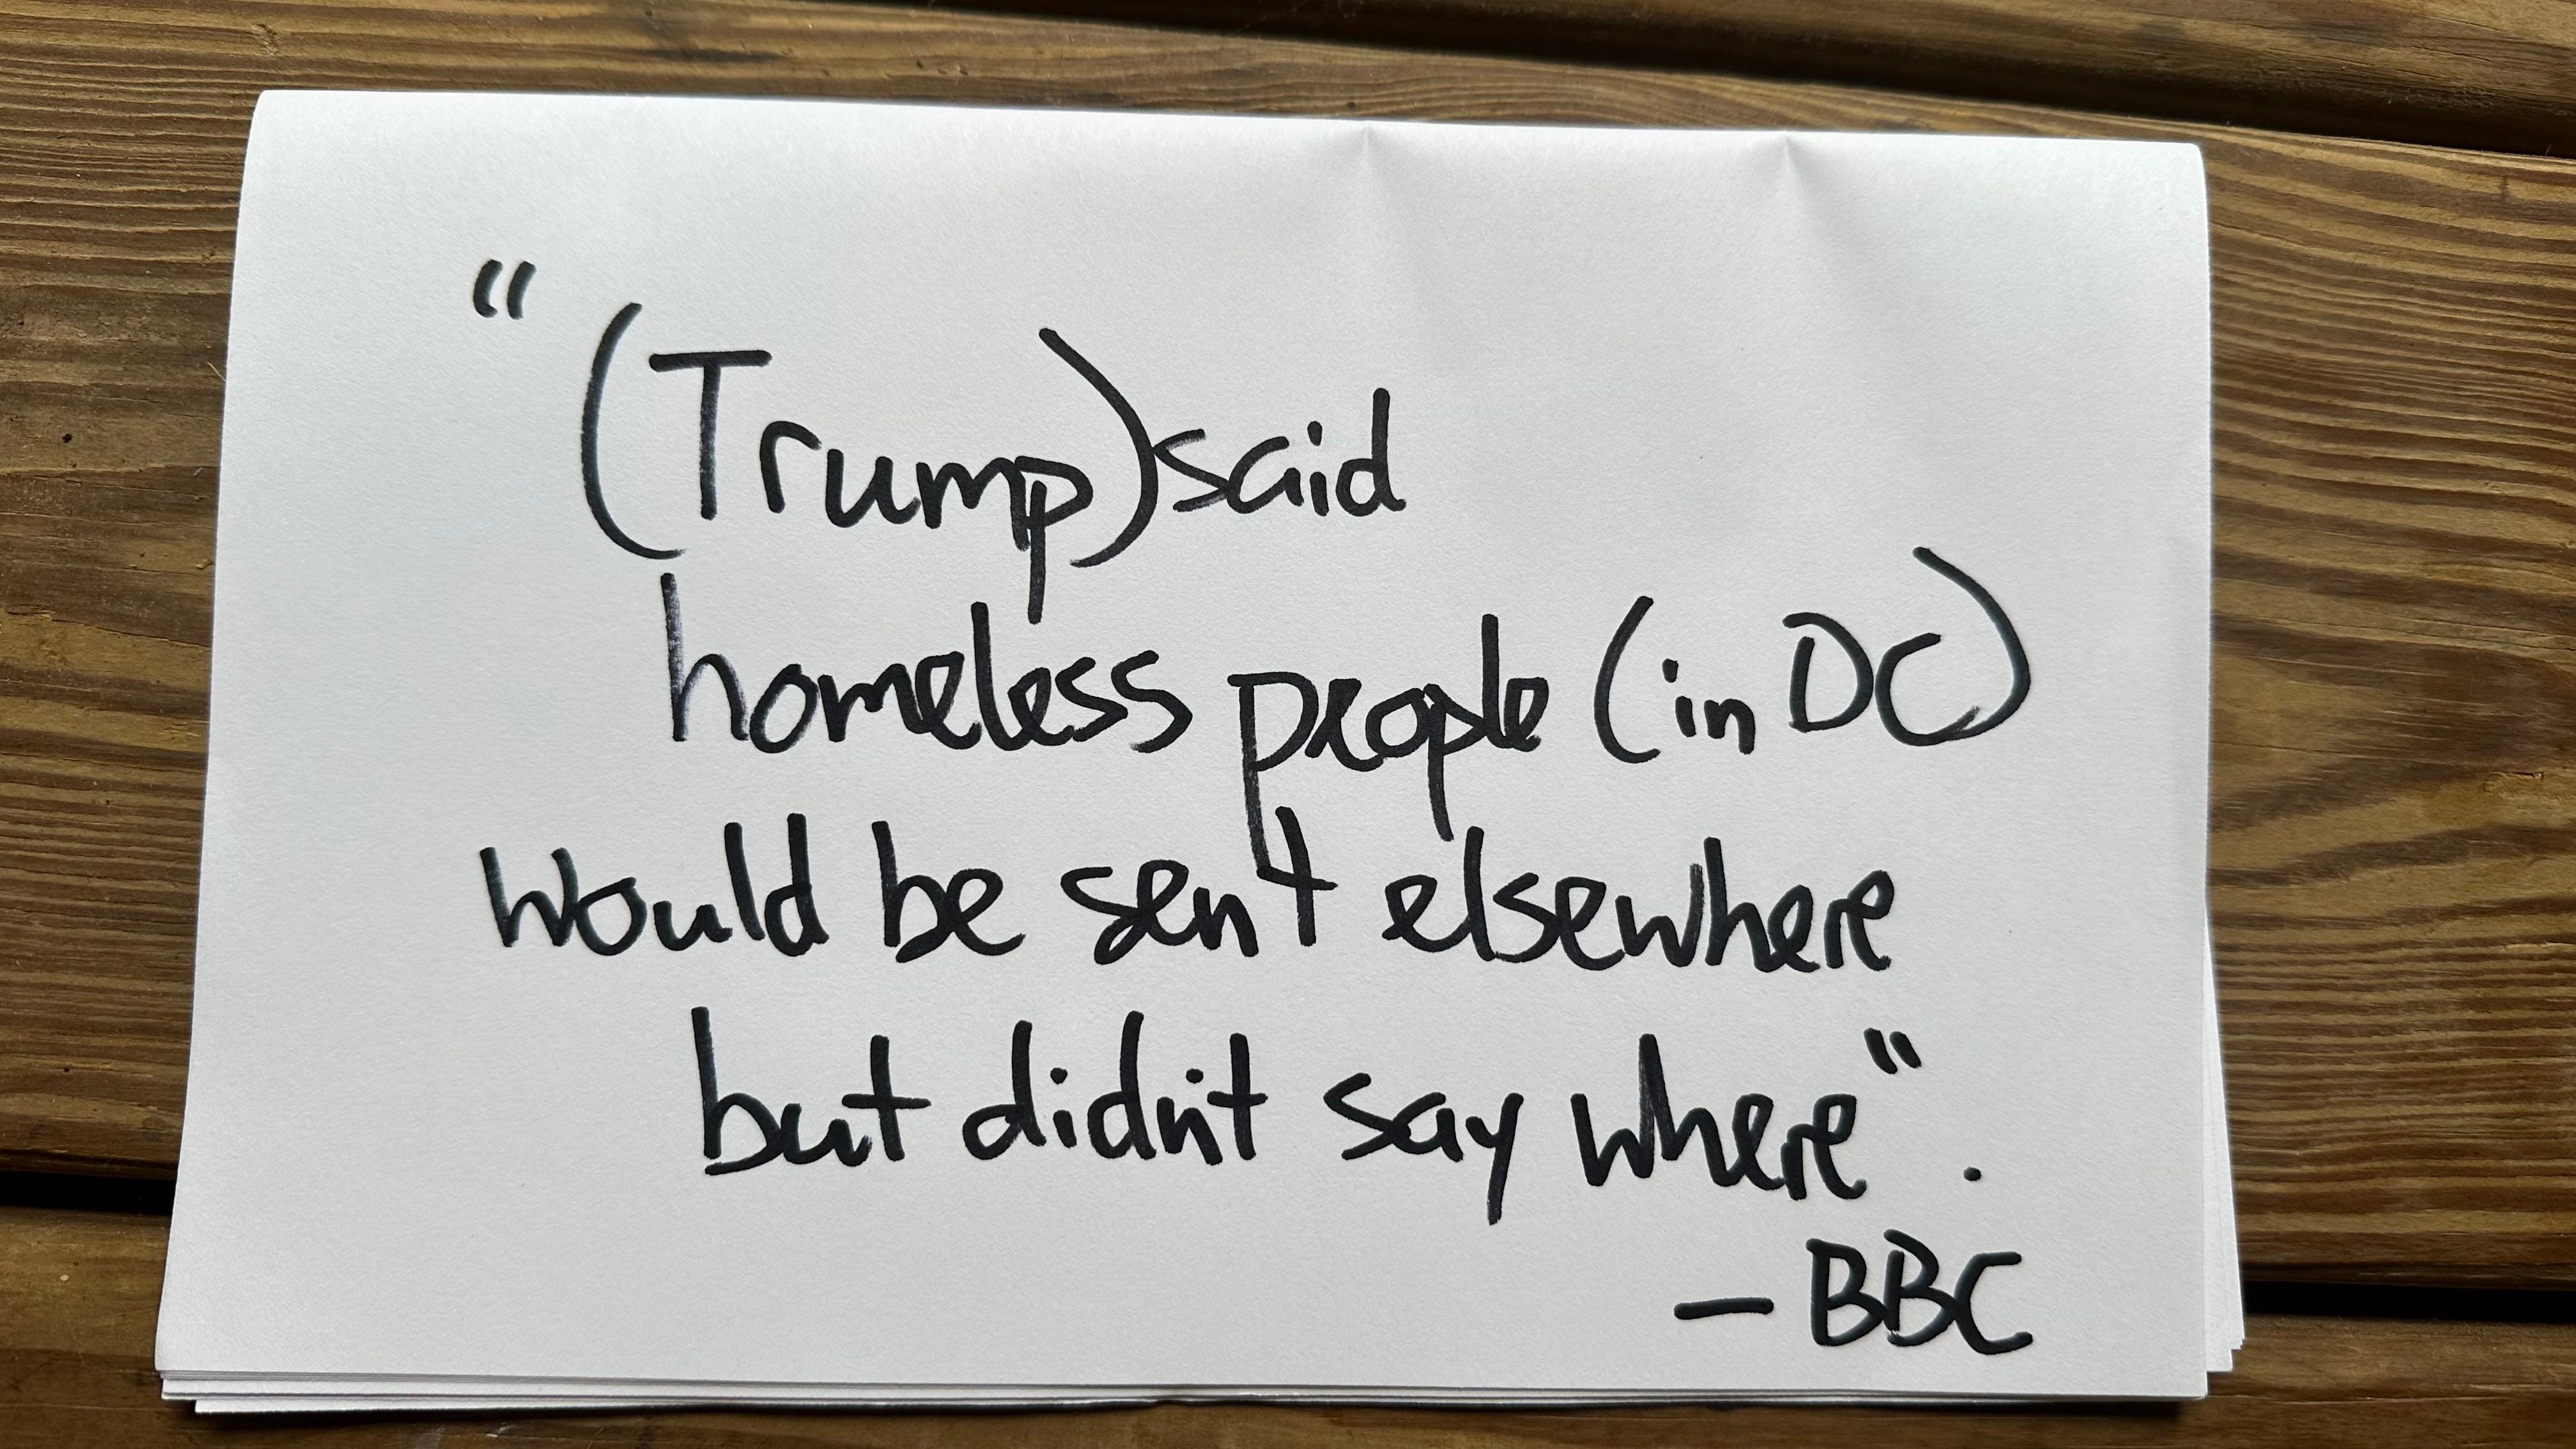 "(Trump) said
homeless people (in DC)
would be sent elsewhere
but didn't say where".
- BBC